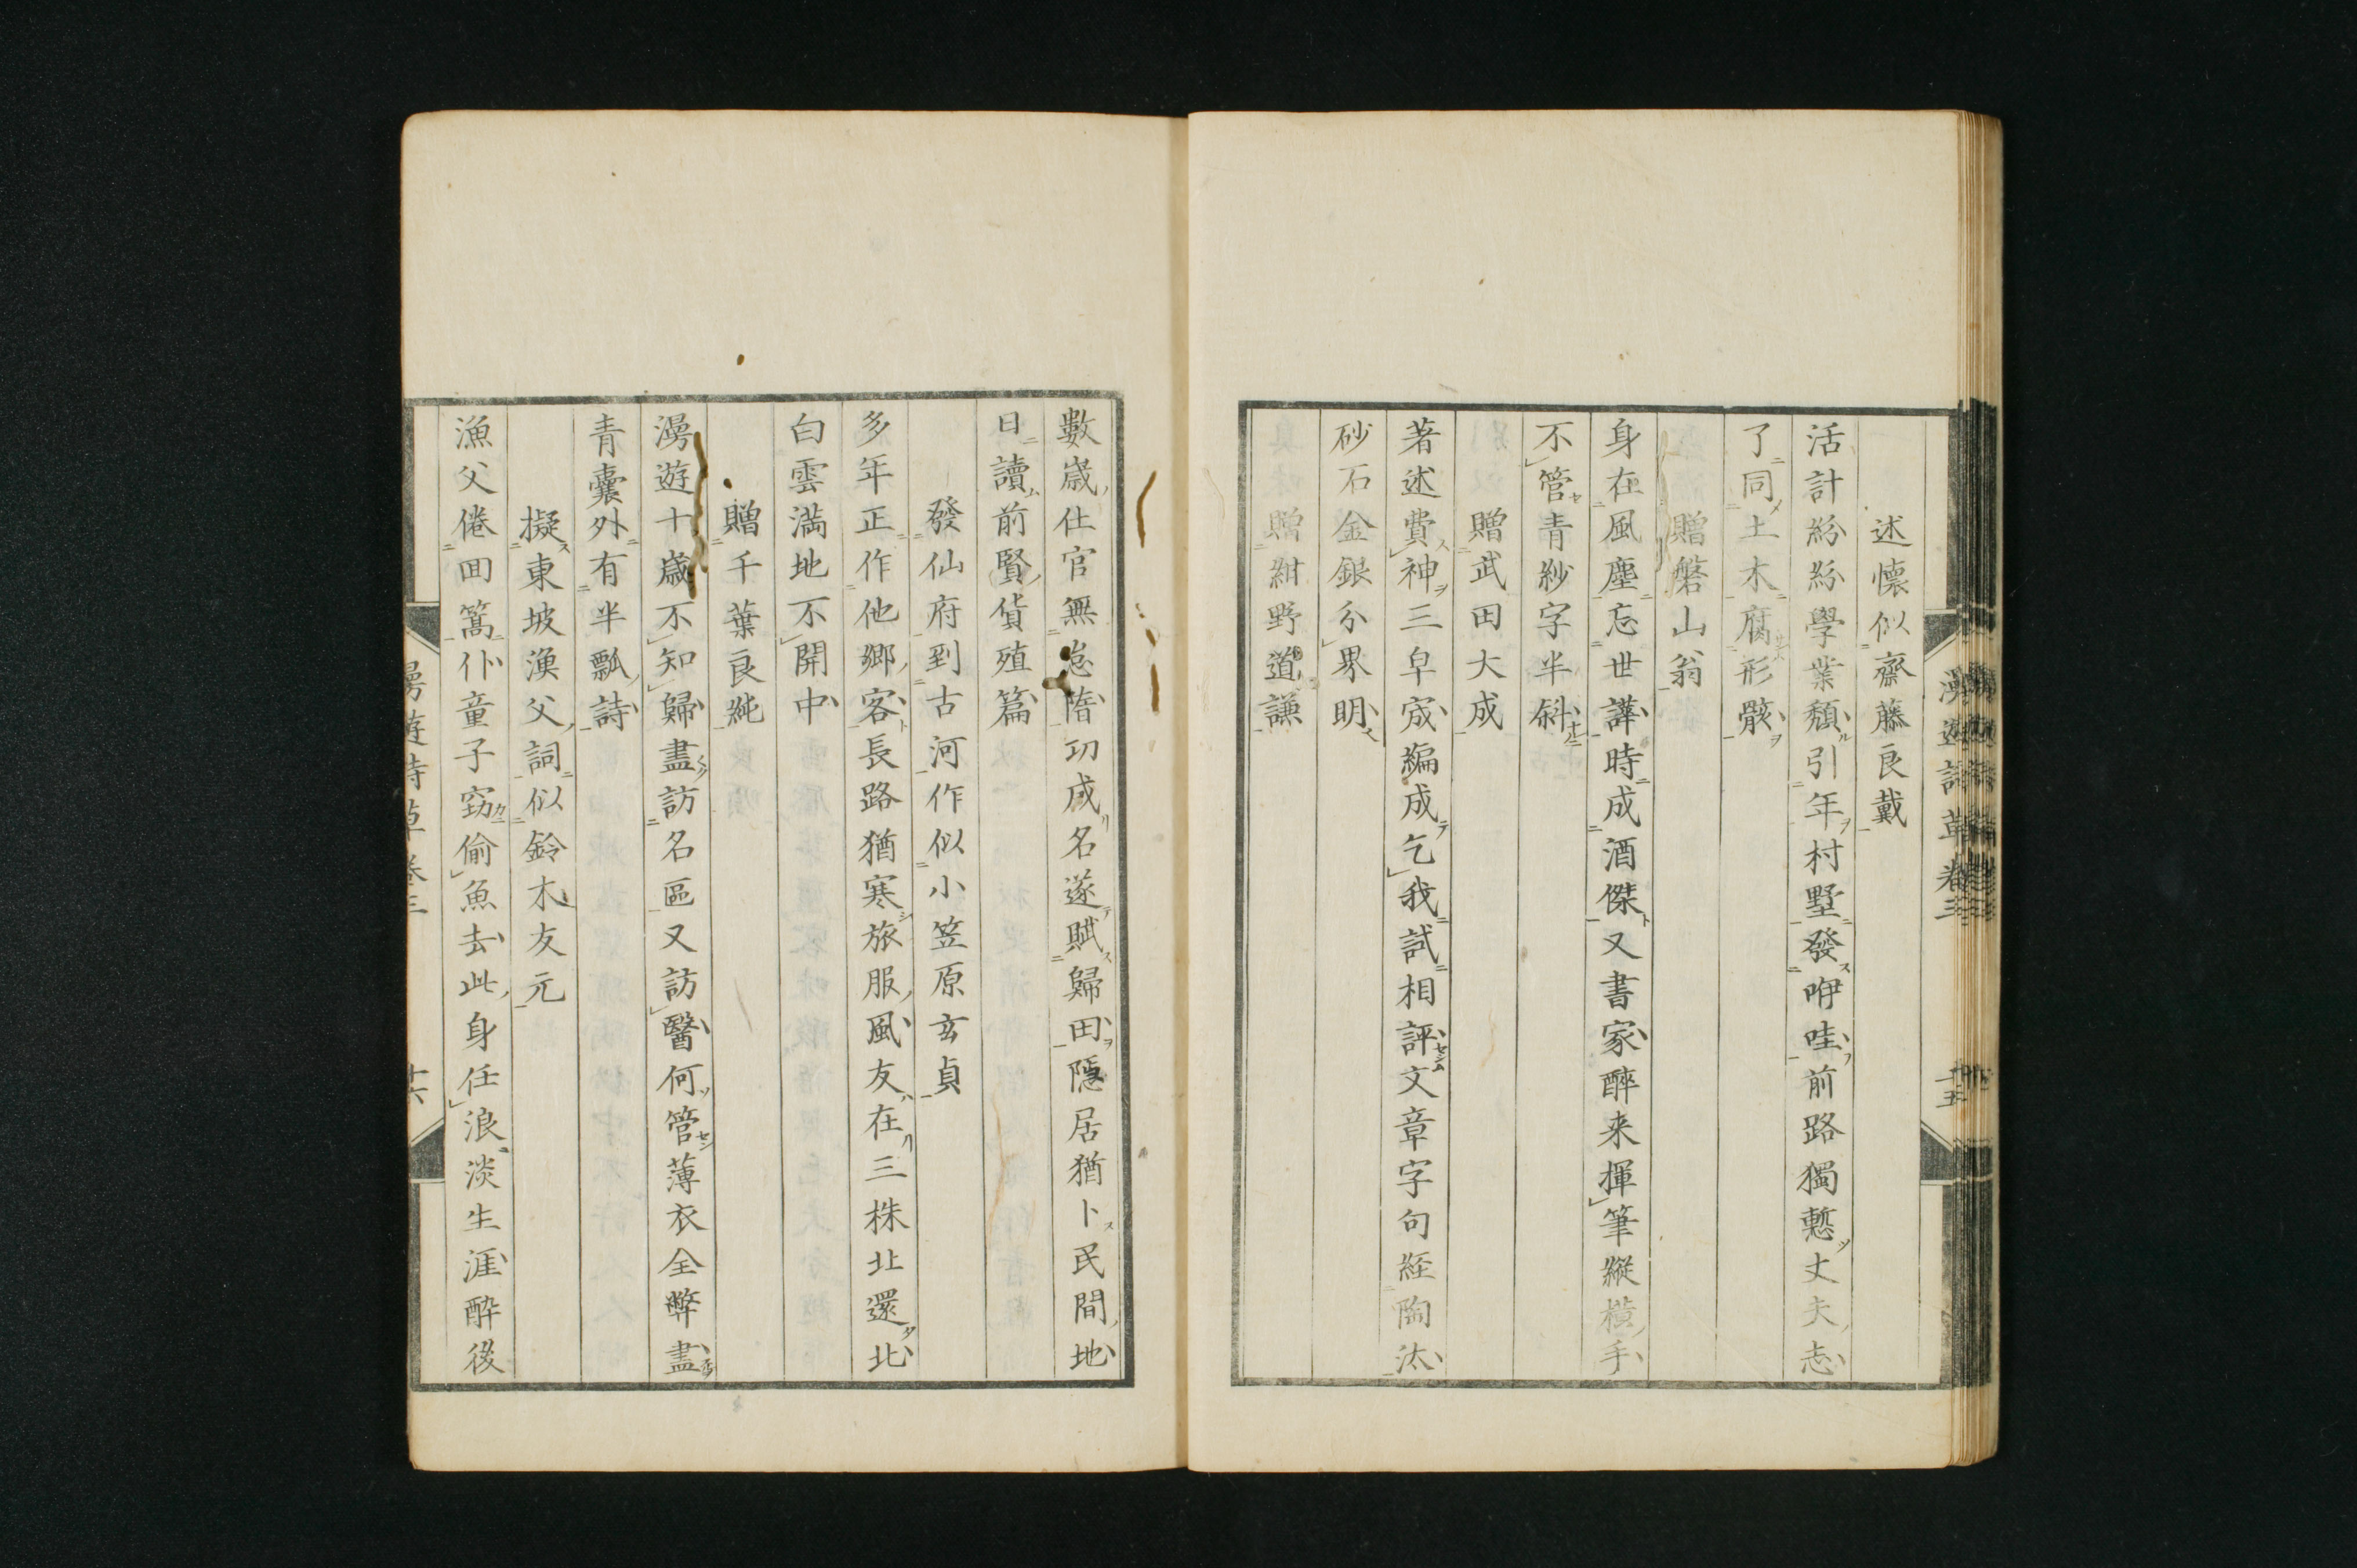 漫遊詩草卷三
十五
述懷似齋藤良戴
活計紛紛學業頽引年村墅發咿哇前路獨慙丈夫志
了同土木腐形骸
贈磐山翁
身在風塵忘世譁時成酒傑又書家醉来揮筆縱横手
不管青紗字半斜
贈武田大成
著述費神三早宬編成乞我試相評文章字句経陶汰
砂石金銀分界明
贈紺野道謙
數歳仕官無怠隋功成名遂賦歸田隱居猶卜民間地
日讀前賢貨殖篇
發仙府到古河作似小笠原玄貞
多年正作他鄉客長路猶寒旅服風友在三株北還北
白雲満地不開中
贈千葉良純
漫遊十歳不知歸盡訪名區又訪醫何管薄衣全弊盡
青囊外有半瓢詩
擬東坡漁父詞似鈴木友元
漁父倦回篙仆童子窈偷魚去此身任浪淡生涯酔後
漫遊詩草卷三
十六